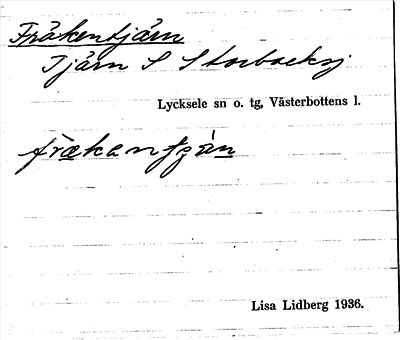 Fräkentjärn
Tjärn S Storbacksj
Lycksele sn o. tg, Västerbottens l.
frækantjän
Lisa Lidberg 1936.